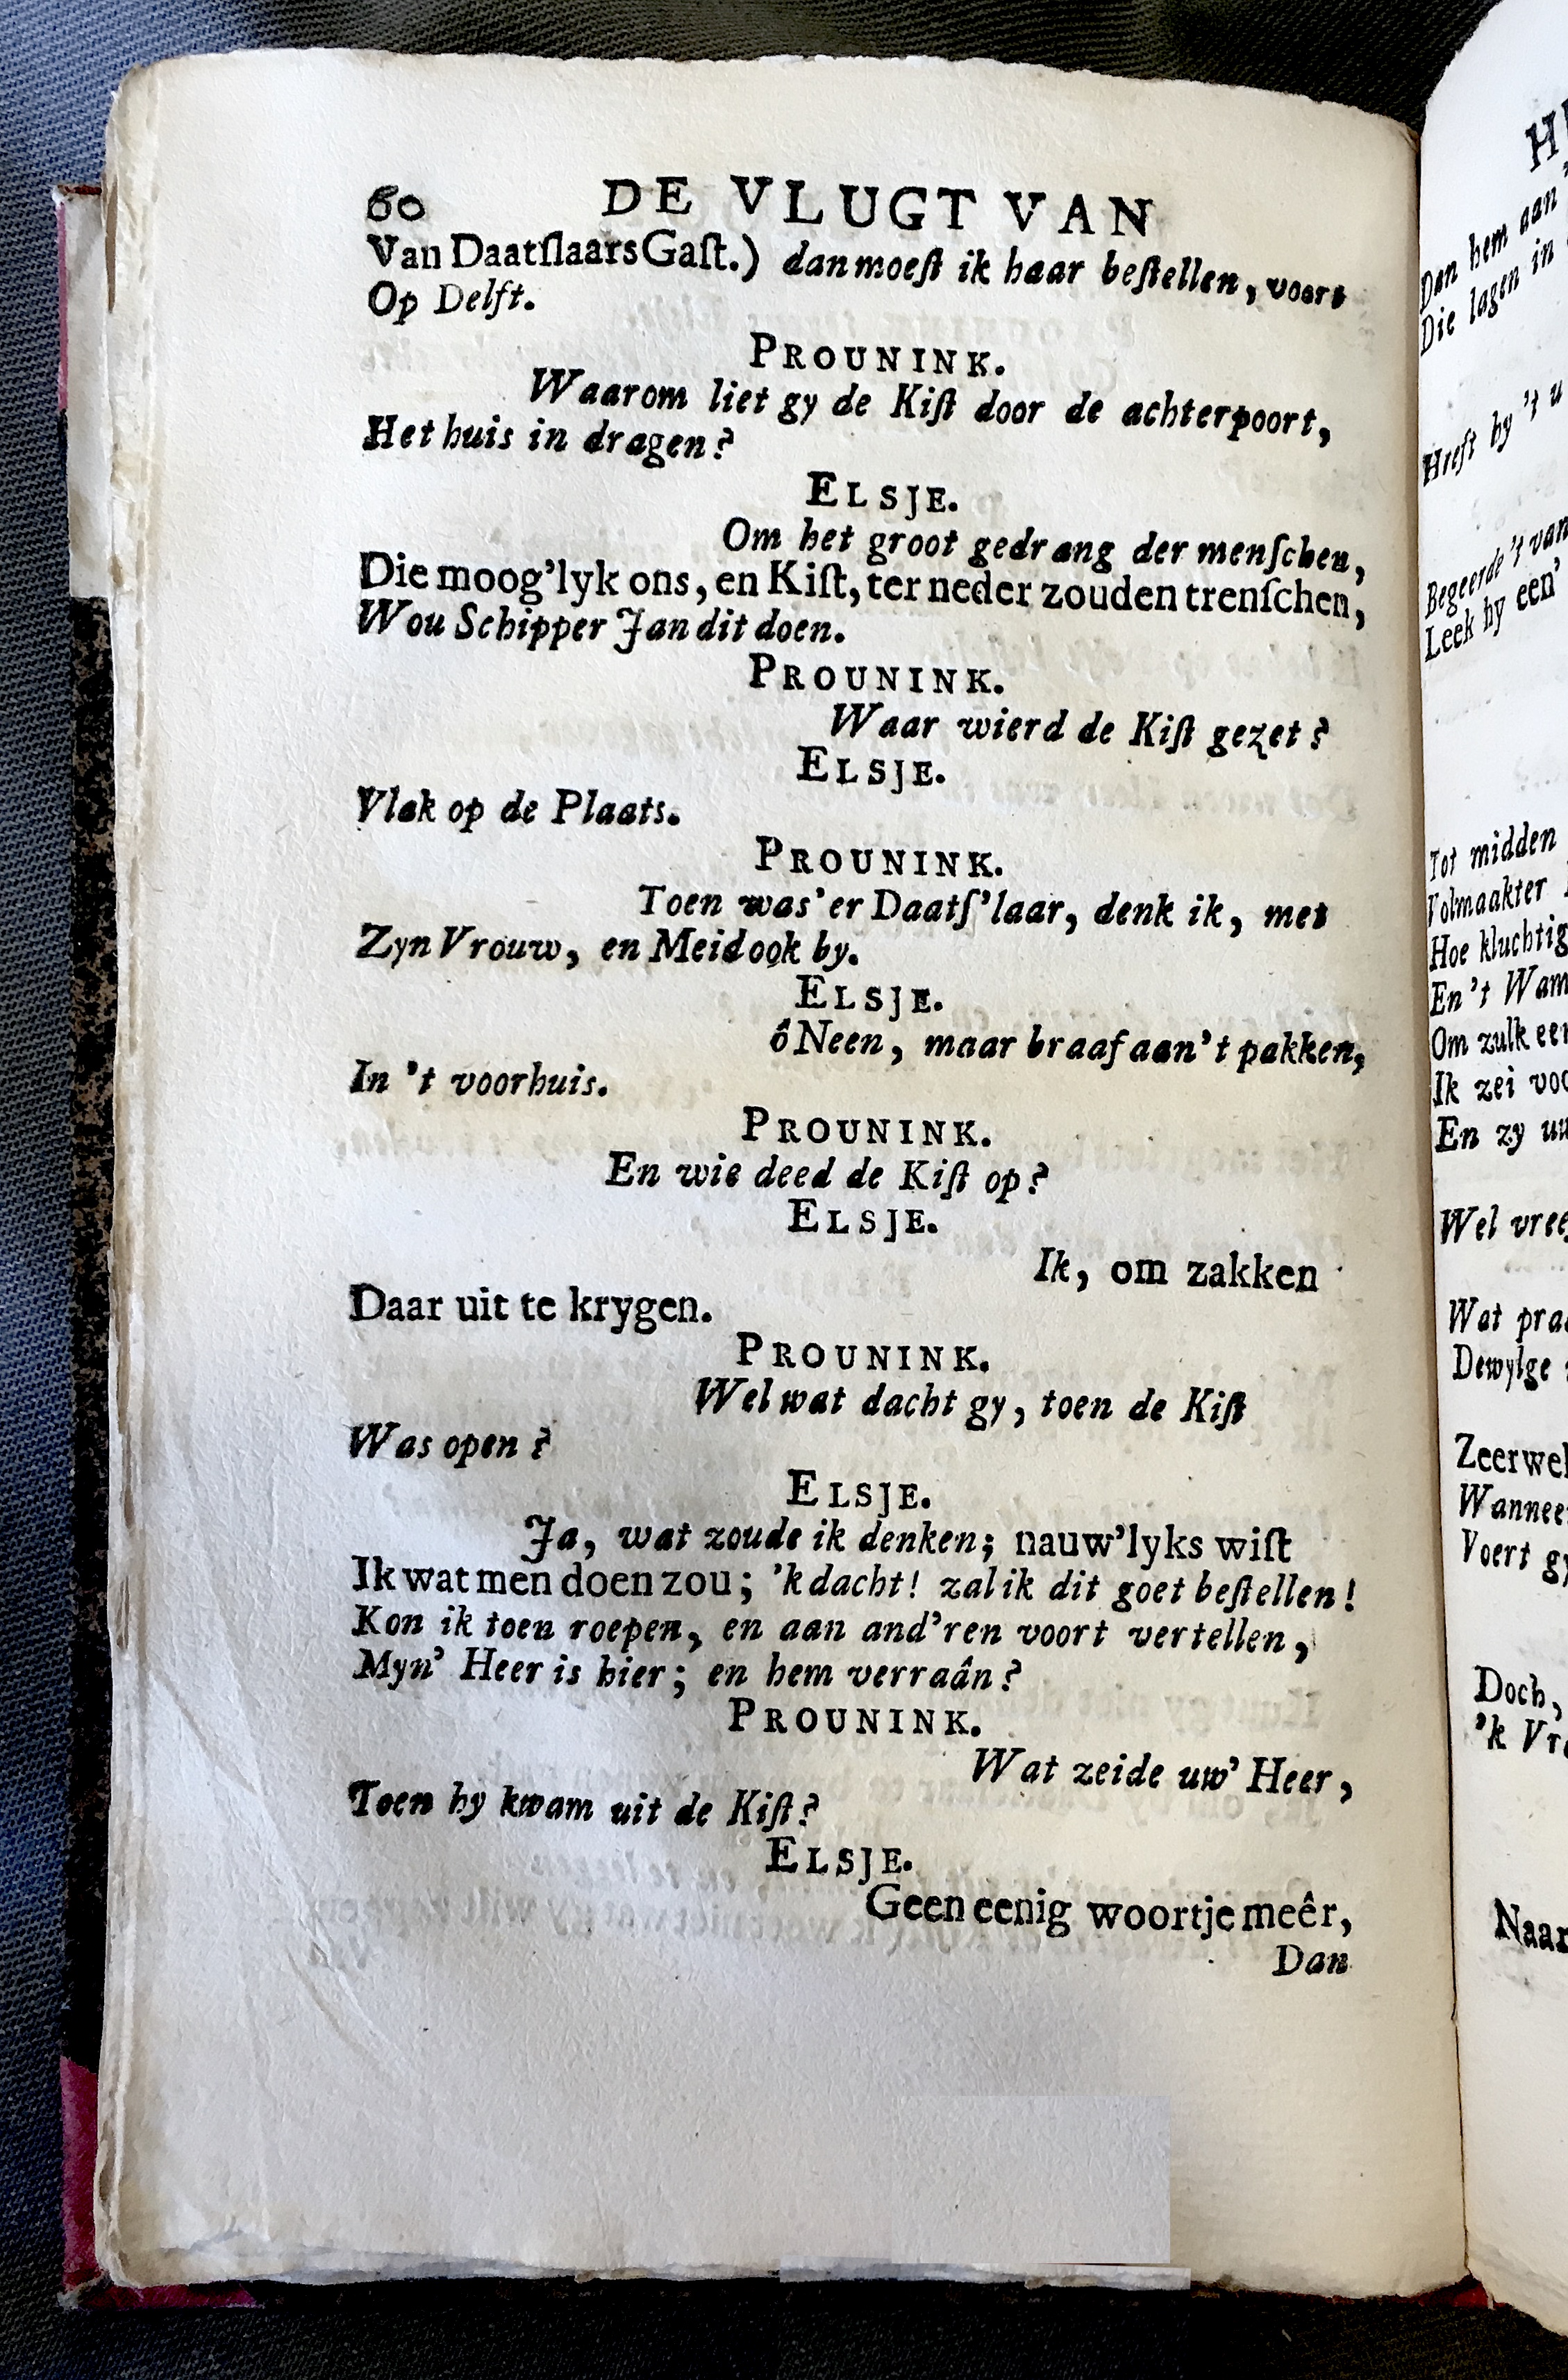 60 DE VLUGT VAN
Van Daatſlaars Gaſt.) dan moeſt ik haar beſtellen, voort
Op Delft.
PROUNINK.
Waarom liet gy de Kiſt door de achterpoort,
Het huis in dragen?
ELSJE.
Om het groot gedrang der menſchen,
Die moog'lyk ons, en Kiſt, ter neder zouden trenſchen,
Wou Schipper Jan dit doen.
PROUNINK.
Waar wierd de Kiſt gezet?
ELSJE.
Vlak op de Plaats.
PROUNINK.
Toen was'er Daatſ'laar, denk ik, met
Zyn Vrouw, en Meid ook by.
ELSJE.
ô Neen, maar braaf aan't pakken,
In 't voorhuis.
PROUNINK.
En wie deed de Kiſt op?
ELSJE.
Ik, om zakken
Daar uit te krygen.
PROUNINK.
Wel wat dacht gy, toen de Kiſt
Was open?
ELSJE.
Ja, wat zoude ik denken; nauw'lyks wiſt
Ik wat men doen zou; 'k dacht! zal ik dit goet beſtellen!
Kon ik toen roepen, en aan and'ren voort vertellen,
Myn' Heer is hier; en hem verraân?
PROUNINK.
Wat zeide uw' Heer,
Toen hy kwam uit de Kiſt?
ELSJE.
Geen eenig woortje meêr,
Dan
Dan hem aan
Die lagen in
Heeft hy 't u
Begeerde 't van
Leek hy een'
Tot midden
Volmaakter
Hoe kluchtig
En 't Wam
Om zulk een
Ik zei voo
En zy uu
Wel vree
Wat praa
Dewylge
Zeer wel
Wanneer
Voert gy
Doch,
'k Vre
Naar